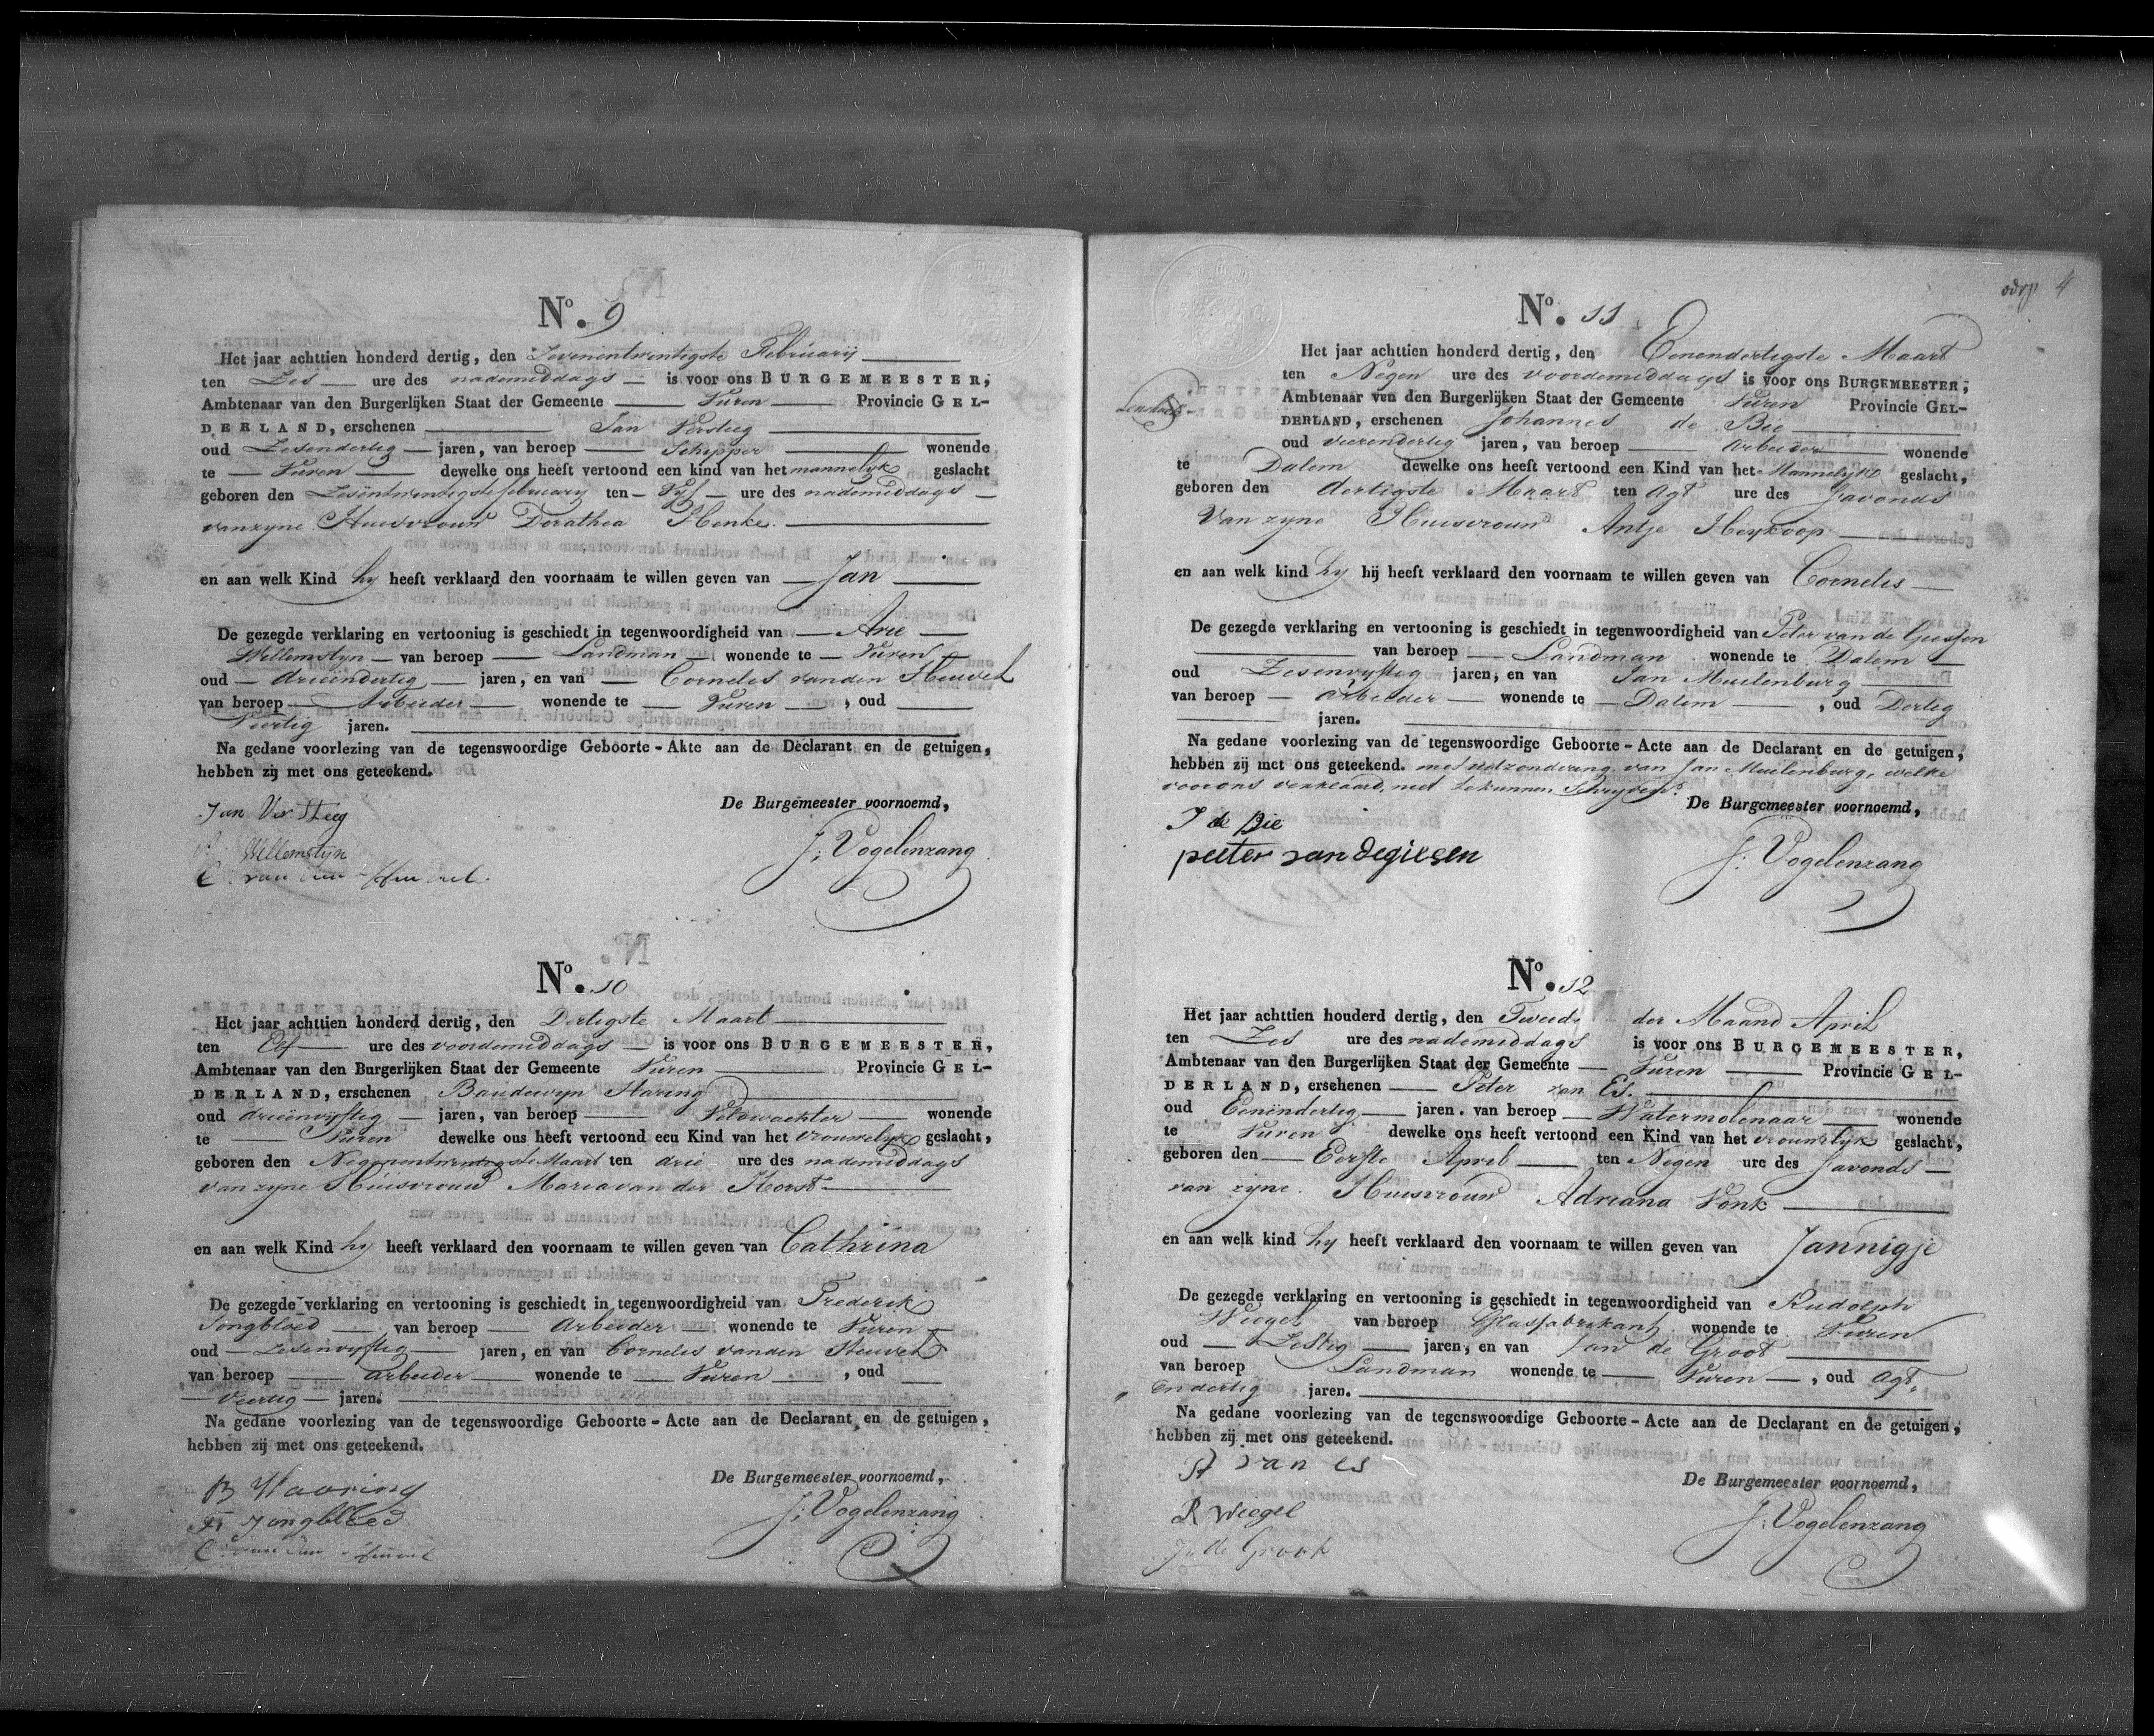 No. 9
Het jaar achttien honderd dertig, den Zevenentwentigste Februarij
ten Zes ure des nademiddags is voor ons BURGEMEESTER,
Ambtenaar van den Burgerlijken Staat der Gemeente Vuren Provincie GEL-
DERLAND, erschenen Jan Versteeg
oud Zesendertig jaren, van beroep Schipper wonende
te Vuren dewelke ons heeft vertoond een kind van het mannelyk geslacht
geboren den Zesëntwentigste february ten Vyf ure des nademiddags
van zyne Huisvrouw Dorathea Henke.
en aan welk Kind hy heeft verklaard den voornaam te willen geven van Jan
De gezegde verklaring en vertooniug is geschiedt in tegenwoordigheid van Arie
Willemstyn van beroep Landman wonende te Vuren
oud drieëndertig jaren, en van Cornelis van den Heuvel
van beroep Arbeider wonende te Vuren, oud
Veertig jaren.
Na gedane voorlezing van de tegenswoordige Geboorte-Akte aan de Declarant en de getuigen,
hebben zij met ons geteekend.
De Burgemeester voornoemd,
Jan Ver Steeg
J: Vogelenzang
A Willemstyn
C van den Heuvel
No. 10
Het jaar achttien honderd dertig, den Dertigste Maart
ten Elf ure des voordemiddags is voor ons BURGEMEESTER,
Ambtenaar van den Burgerlijken Staat der Gemeente Vuren Provincie GEL-
DERLAND, erschenen Baudewyn Haring
oud drieënvyftig jaren, van beroep Veldwachter wonende
te Vuren dewelke ons heeft vertoond een Kind van het vrouwelyk geslacht,
geboren den Negenentwentigste Maart ten drie ure des nademiddags
van zyne Huisvrouw Maria van der Horst
en aan welk Kind hy heeft verklaard den voornaam te willen geven van Cathrina
De gezegde verklaring en vertooning is geschiedt in tegenwoordigheid van Frederik
Jongbloed van beroep Arbeider wonende te Vuren
oud Zesenvyftig jaren, en van Cornelis van den Heuvel
van beroep arbeider wonende te Vuren, oud
Veertig jaren.
Na gedane voorlezing van de tegenswoordige Geboorte-Acte aan de Declarant en de getuigen,
hebben zij met ons geteekend.
De Burgemeester voornoemd,
B Haaring
J: Vogelenzang
F Jongbloed
C van den Heuvel
4
No. 11
Het jaar achttien honderd dertig, den Eenendertigste Maart
ten Negen ure des voordemiddags is voor ons BURGEMEESTER,
Ambtenaar van den Burgerlijken Staat der Gemeente Vuren Provincie GEL-
DERLAND, erschenen Johannes de Bie
oud vierendertig jaren, van beroep Arbeider wonende
te Dalem dewelke ons heeft vertoond een Kind van het Mannelyke geslacht,
geboren den dertigste Maart ten Agt ure des Savonds
Van zyne Huisvrouw Antje Heykoop
en aan welk kind hy hij heeft verklaard den voornaam te willen geven van Cornelis
De gezegde verklaring en vertooning is geschiedt in tegenwoordigheid van Peter van de Giessen
van beroep Landman wonende te Dalem
oud Zesenvyftig jaren, en van Jan Muilenburg
van beroep Arbeider wonende te Dalem, oud Dertig
jaren.
Na gedane voorlezing van de tegenswoordige Geboorte-Acte aan de Declarant en de getuigen,
hebben zij met ons geteekend. met uitzondering van Jan Muilenburg, welke
voor ons verklaard, niet te kunnen Schryven.
De Burgemeester voornoemd,
J de Bie
J: Vogelenzang
peeter van de giesen
No. 12
Het jaar achttien honderd dertig, den Tweede der Maand April
ten Zes ure des nademiddags is voor ons BURGEMEESTER,
Ambtenaar van den Burgerlijken Staat der Gemeente Vuren Provincie GEL-
DERLAND, erschenen Peter van Es.
oud Eenëndertig jaren. van beroep Watermolenaar wonende
te Vuren dewelke ons heeft vertoond een Kind van het vrouwelyk geslacht,
geboren den Eerste April ten Negen ure des Savonds
van zyne Huisvrouw Adriana Vonk
en aan welk kind hy heeft verklaard den voornaam te willen geven van Jannigje
De gezegde verklaring en vertooning is geschiedt in tegenwoordigheid van Rudolph
Wiegel van beroep Glasfabrikant wonende te Vuren
oud Zestig jaren, en van Jan de Groot
van beroep Landman wonende te Vuren, oud Agt
endertig jaren.
Na gedane voorlezing van de tegenswoordige Geboorte-Acte aan de Declarant en de getuigen,
hebben zij met ons geteekend.
P van es
De Burgemeester voornoemd,
R Wiegel
J: Vogelenzang
Jn de Groot